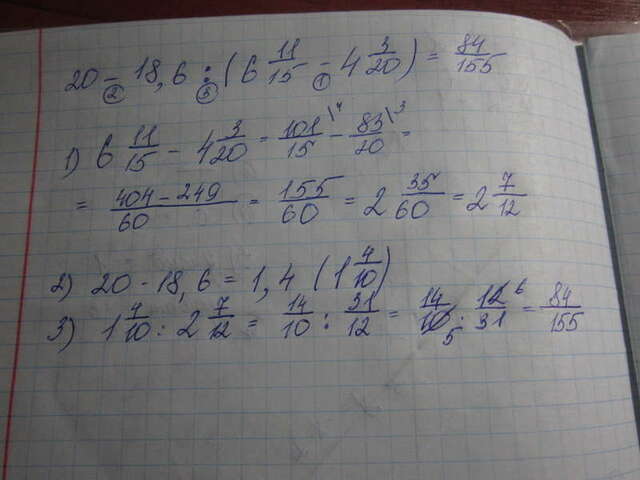 20 - 18,6 : (6 11/15 - 4 3/20) = 84/155
1) 6 11/15 - 4 3/20 = 101/15 - 83/20 =
= 404 - 249/60 = 155/60 = 2 35/60 = 2 7/12
2) 20 - 18,6 = 1,4 (1 4/10)
3) 1 4/10 : 2 7/12 = 14/10 : 31/12 = 14/10 : 12/31 = 84/155